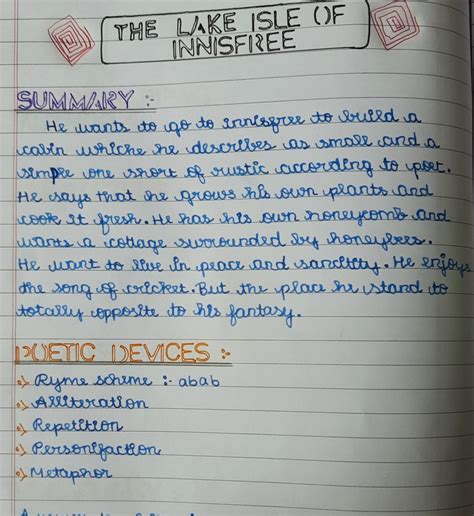 THE LAKE ISLE OF
INNISFREE
SUMMARY :-
He wants to go to innisfree to build a
cabin whiche he describes as small and a
simple one short of rustic according to poet.
He says that he grows his own plants and
cook it fresh. He has his own honeycomb and
wants a cottage surrounded by honeybees.
He want to live in peace and sanctity. He enjoys
the song of cricket. But the place he stand to
totally opposite to his fantasy.
POETIC DEVICES :-
Ryme scheme :- abab
Alliteration
Repetition
Personifaction
Metaphor